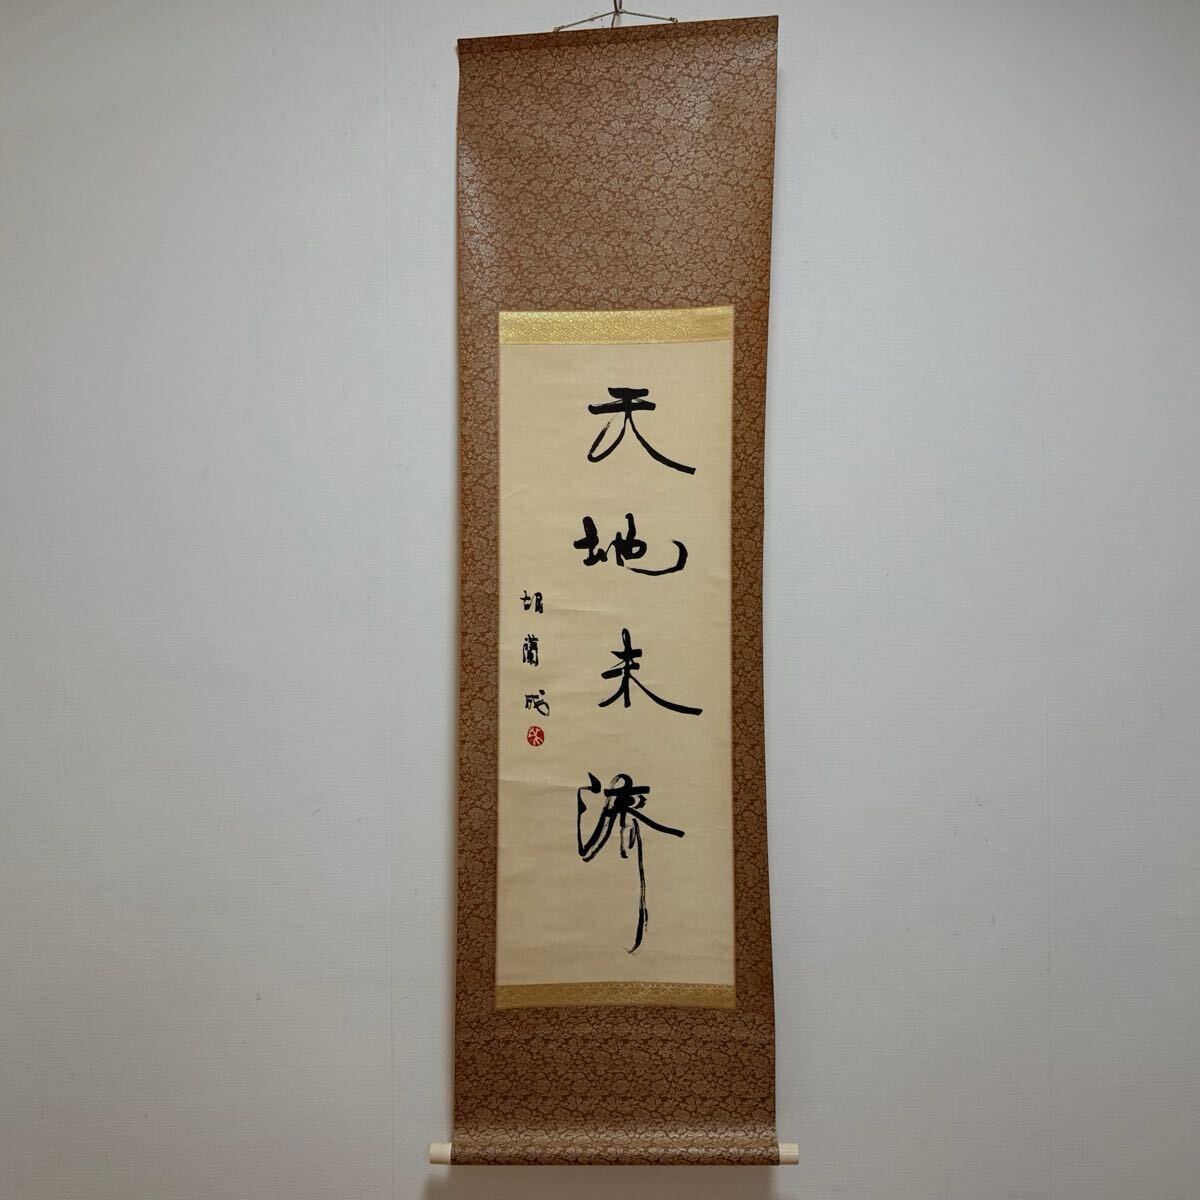 天地未済
胡蘭成